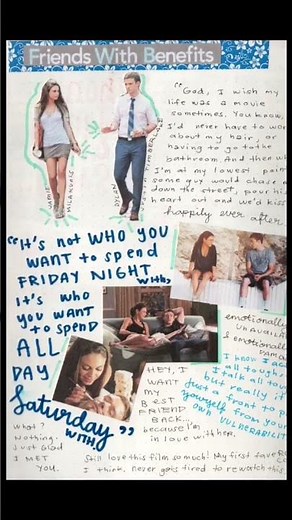 Friends With Benefits
"God, I wish my
life was a movie
sometimes. You know,
I'd never have to wor
about my hair, or
having to go to the
bathroom And then wh
I'm at my lowest poin
some guy would chase a
down the street, pour his
heart out and we'd kiss
happily ever after
JAMIE
MILA KUNIS
DYLAN
TIMBERLAKE
"It's not WHO YOU
WANT to spend
FRIDAY NIGHT
WITH,
It's who
you WANT
to spend
ALL
DAY
Saturday
WITH!"
emotionally
UNAVAILA
& EMOTIONALLY
DAMA
I know I act
all tough,
I talk all toug
but really it's
Just a front to p
yourself from your
OWN VULNERABILIT
HEY, I
WANT
MY
BEST
FRIEND
BACK..
because I'm
in love with her.
What?
Nothing.
Just Glad
I MET
YOU.
Still love this film so much! My first fave R
I think. never gets tired to rewatch this